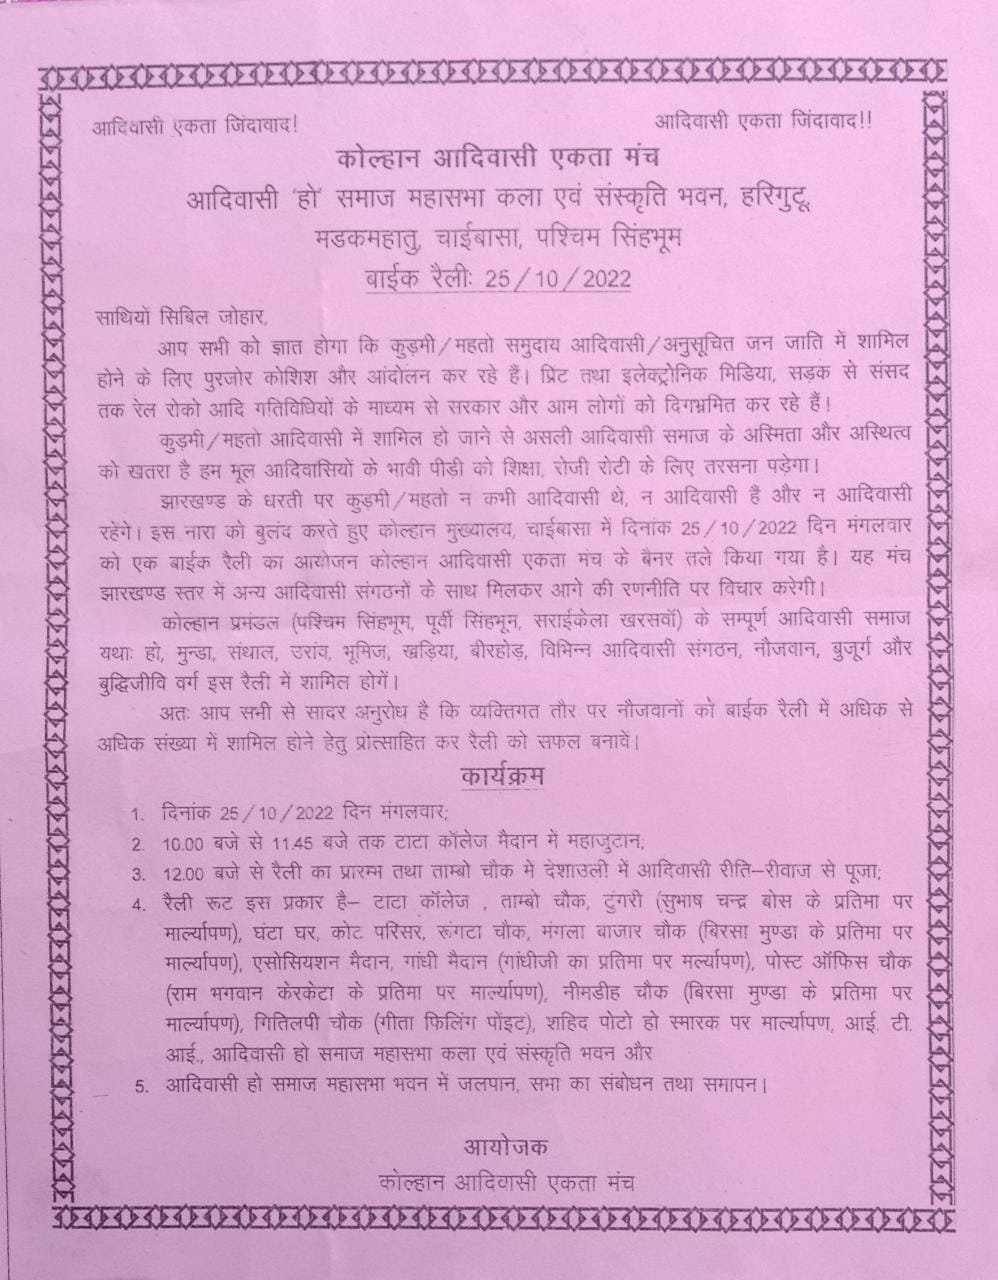 आदिवासी एकता जिंदावाद!
आदिवासी एकता जिंदावाद!!
कोल्हान आदिवासी एकता मंच
आदिवासी 'हो' समाज महासभा कला एवं संस्कृति भवन, हरिगुटू,
मडकमहातु, चाईबासा, पश्चिम सिंहभूम
बाईक रैलीः 25/10/2022
साथियों सिबिल जोहार,
आप सभी को ज्ञात होगा कि कुड़मी/महतो समुदाय आदिवासी/अनुसूचित जन जाति में शामिल
होने के लिए पुरजोर कोशिश और आंदोलन कर रहे हैं। प्रिंट तथा इलेक्ट्रोनिक मिडिया, सड़क से संसद
तक रेल रोको आदि गतिविधियों के माध्यम से सरकार और आम लोगों को दिगभ्रमित कर रहे हैं!
कुड़मी/महतो आदिवासी में शामिल हो जाने से असली आदिवासी समाज के अस्मिता और अस्थित्व
को खतरा है हम मूल आदिवासियों के भावी पीड़ी को शिक्षा, रोजी रोटी के लिए तरसना पड़ेगा।
झारखण्ड के धरती पर कुड़मी/महतो न कभी आदिवासी थे, न आदिवासी हैं और न आदिवासी
रहेंगे। इस नारा को बुलंद करते हुए कोल्हान मुख्यालय, चाईबासा में दिनांक 25/10/2022 दिन मंगलवार
को एक बाईक रैली का आयोजन कोल्हान आदिवासी एकता मंच के बैनर तले किया गया है। यह मंच
झारखण्ड स्तर में अन्य आदिवासी संगठनों के साथ मिलकर आगे की रणनीति पर विचार करेगी।
कोल्हान प्रमंडल (पश्चिम सिंहभूम, पूर्वी सिंहभूम, सराईकेला खरसवॉ) के सम्पूर्ण आदिवासी समाज
यथाः हो, मुन्डा, संथाल, उरांव, भूमिज, खड़िया, बीरहोड़, विभिन्न आदिवासी संगठन, नौजवान, बुजूर्ग और
बुद्धिजीवि वर्ग इस रैली में शामिल होगें।
अतः आप सभी से सादर अनुरोध है कि व्यक्तिगत तौर पर नौजवानों को बाईक रैली में अधिक से
अधिक संख्या में शामिल होने हेतु प्रोत्साहित कर रैली को सफल बनावें।
कार्यक्रम
1. दिनांक 25/10/2022 दिन मंगलवार;
2. 10.00 बजे से 11.45 बजे तक टाटा कॉलेज मैदान में महाजुटान;
3. 12.00 बजे से रैली का प्रारम्भ तथा ताम्बो चौक में देशाउली में आदिवासी रीति–रीवाज से पूजा;
4. रैली रूट इस प्रकार है– टाटा कॉलेज , ताम्बो चौक, टुंगरी (सुभाष चन्द्र बोस के प्रतिमा पर
मार्ल्यापण), घंटा घर, कोट परिसर, रूंगटा चौक, मंगला बाजार चौक (बिरसा मुण्डा के प्रतिमा पर
मार्ल्यापण), एसोसियशन मैदान, गांधी मैदान (गांधीजी का प्रतिमा पर मर्ल्यापण), पोस्ट ऑफिस चौक
(राम भगवान केरकेटा के प्रतिमा पर मार्ल्यापण), नीमडीह चौक (बिरसा मुण्डा के प्रतिमा पर
मार्ल्यापण), गितिलपी चौक (गीता फिलिंग पोंइट), शहिद पोटो हो स्मारक पर मार्ल्यापण, आई. टी.
आई., आदिवासी हो समाज महासभा कला एवं संस्कृति भवन और
5. आदिवासी हो समाज महासभा भवन में जलपान, सभा का संबोधन तथा समापन।
आयोजक
कोल्हान आदिवासी एकता मंच